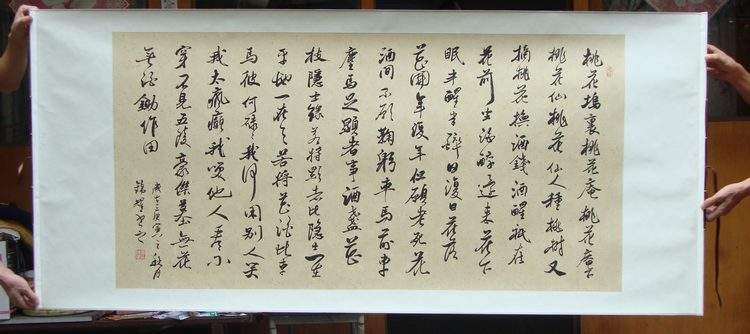 桃花塢裏桃花庵桃花庵下
桃花仙桃花仙人種桃樹又
摘桃花換酒錢酒醒祇在
花前坐酒醉還來花下
眠半醒半醉日復日花落
花開年復年但願老死花
酒間不願鞠躬車馬前車
塵馬足顯者事酒盞花
枝隱士緣若將顯者比隱士一在
平地一在天若將花酒比車
馬彼何碌碌我何閑別人笑
我太瘋癲我笑他人看不
穿不見五陵豪傑墓無花
無酒鋤作田
庚寅之秋月